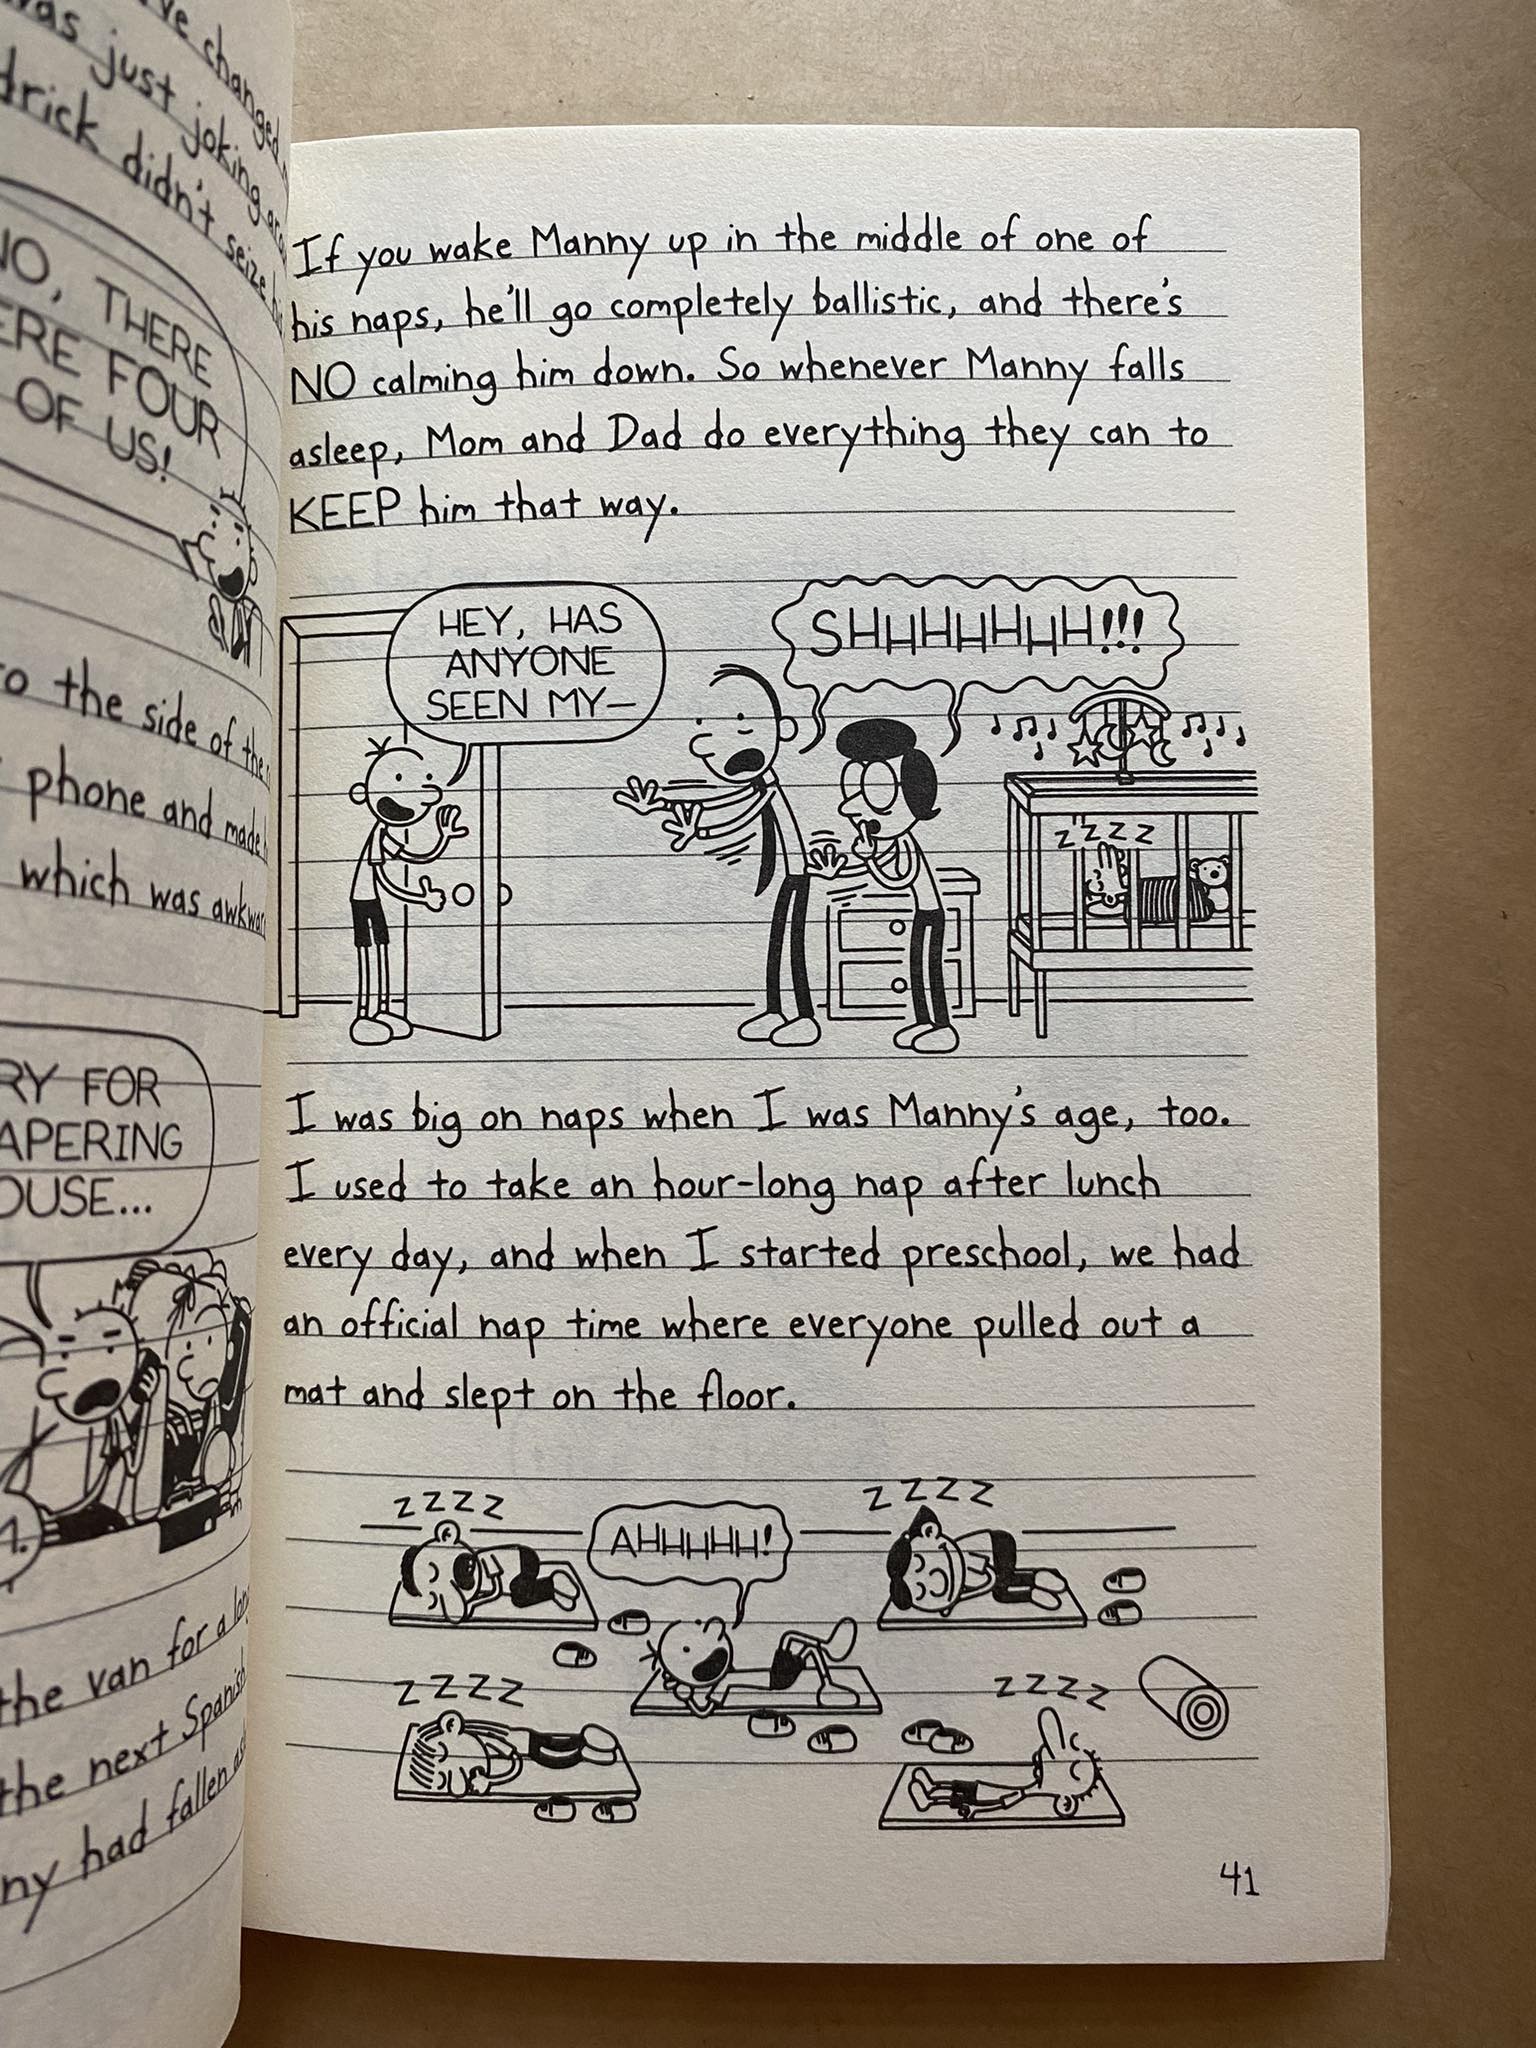 changed
was just joking
drick didn't seize
NO, THERE
ERE FOUR
OF US!
to the side of the
phone and made
which was awkwar
RY FOR
APERING
OUSE...
the van for a long
the next Spanish
ny had fallen
If you wake Manny up in the middle of one of
his naps, he'll go completely ballistic, and there's
NO calming him down. So whenever Manny falls
asleep, Mom and Dad do everything they can to
KEEP him that way.
HEY, HAS
ANYONE
SEEN MY—
SHHHHHHH!!!
ZZZZZ
I was big on naps when I was Manny's age, too.
I used to take an hour-long nap after lunch
every day, and when I started preschool, we had
an official nap time where everyone pulled out a
mat and slept on the floor.
ZZZZ
AHHHHH!
ZZZZ
ZZZZ
ZZZZ
41